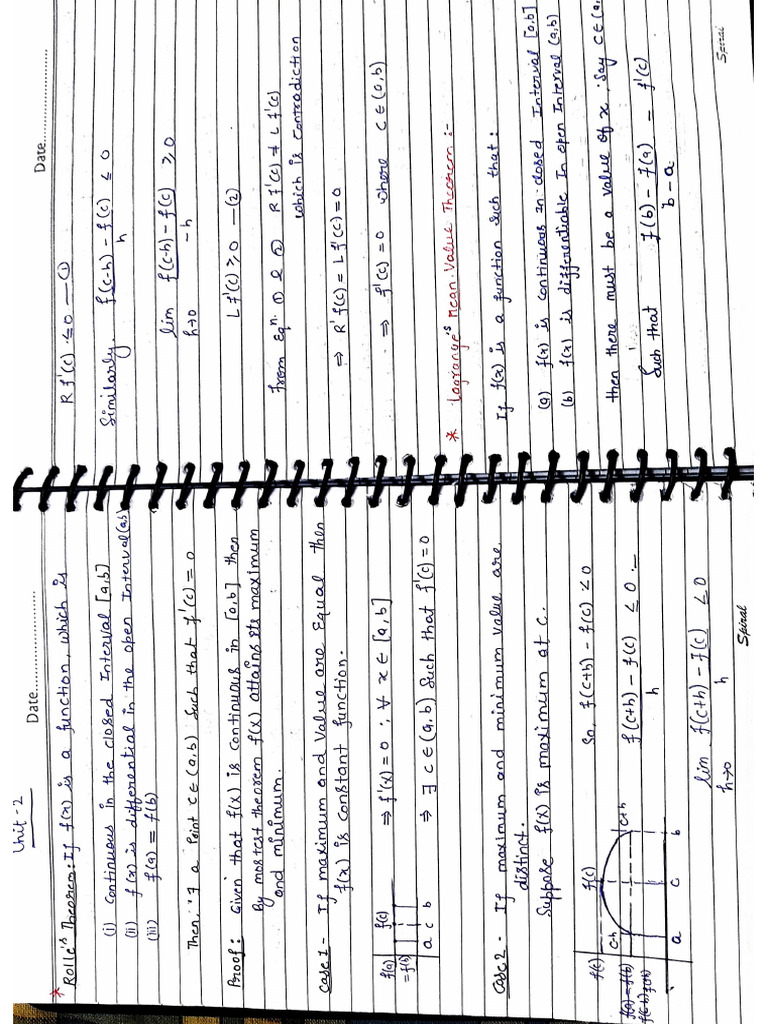 Unit - 2
Date....................
* Rolle's Theorem: If f(x) is a function, which is
(i) Continuous in the closed Interval [a,b]
(ii) f(x) is differential in the open Interval (a,b)
(iii) f(a) = f(b)
Then, ∃ a Point c∈(a,b) Such that f'(c) = 0
Proof: Given that f(x) is continuous in [a,b] then
By mostest theorem f(x) attains its maximum
and minimum.
Case 1 - If maximum and value are Equal then
f(x) is constant function.
f(a) f(c)
= f(b)
a c b
⇒ f'(x) = 0 ; ∀ x ∈ [a,b]
⇒ ∃ c∈(a,b) Such that f'(c) = 0
Case 2 - If maximum and minimum value are
distinct.
Suppose f(x) is maximum at c.
f(c) f(c)
c-h c+h
f(a) = f(b)
a c b
So, f(c+h) - f(c) < 0
f(c+h) - f(c) ≤ 0
h
lim f(c+h) - f(c) ≤ 0
h→0 h
Spiral
Date....................
R f'(c) ≤ 0 — ①
Similarly, f(c-h) - f(c) ≤ 0
h
lim f(c-h) - f(c) ≥ 0
h→0 -h
L f'(c) ≥ 0 — ②
from Eqn. ① & ② R f'(c) ≠ L f'(c)
which is contradiction
⇒ R'f(c) = L f'(c) = 0
⇒ f'(c) = 0 where c∈(a,b)
* Lagrange's Mean Value Theorem :-
If f(x) is a function such that :
(a) f(x) is continuous in closed Interval [a,b]
(b) f(x) is differentiable In open Interval (a,b)
then there must be a value of x, say c∈(a,
Such that f(b) - f(a) = f'(c)
b - a
Spiral